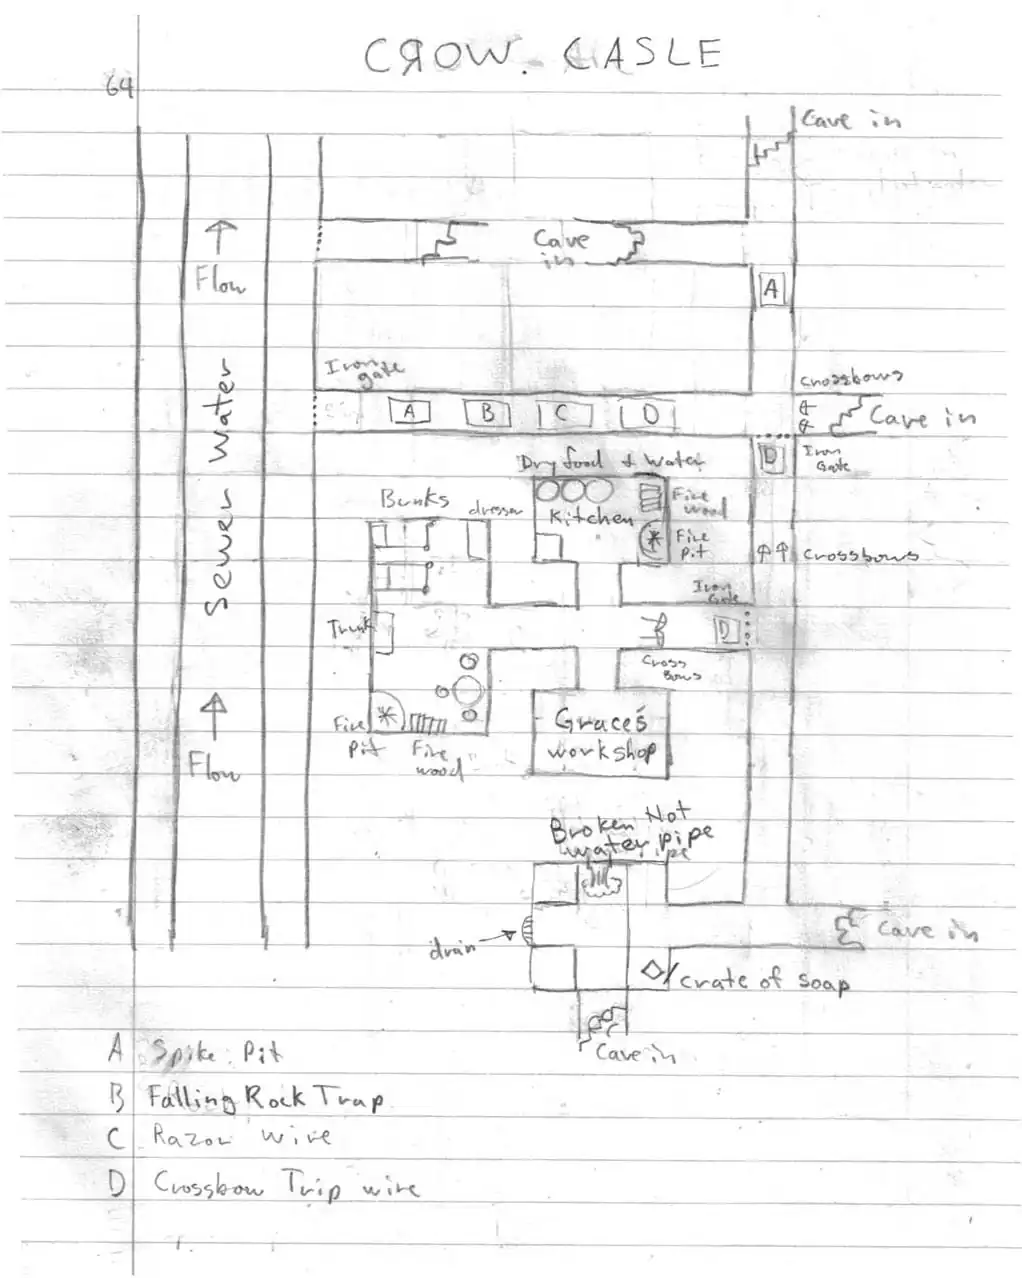 CROW. CASLE
64
Cave in
Flow
Cave
in
A
Iron
gate
Crossbows
A
B
C
D
Cave in
Sewer Water
D
Iron
Gate
Dry food + Water
Kitchen
Fire
wood
Fire
pit
Bunks
dresser
Crossbows
Iron
Gate
Trunk
D
Cross
Bows
Fire
pit
Fire
wood
Grace's
workshop
Flow
Broken Hot
water pipe
drain
Cave in
Crate of soap
Cave in
A Spike Pit
B Falling Rock Trap
C Razor Wire
D Crossbow Trip wire